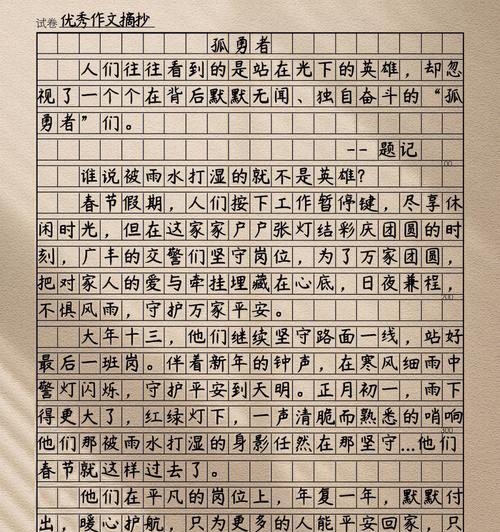 试卷 优秀作文摘抄
孤勇者
人们往往看到的是站在光下的英雄，却忽
视了一个个在背后默默无闻、独自奋斗的“孤
勇者”们。
-- 题记
谁说被雨水打湿的就不是英雄？
春节假期，人们按下工作暂停键，尽享休
闲时光，但在这家家户户张灯结彩庆团圆的时
刻，广丰的交警们坚守岗位，为了万家团圆，
把对家人的爱与牵挂埋藏在心底，日夜兼程，
200
不惧风雨，守护万家平安。
大年十三，他们继续坚守路面一线，站好
最后一班岗。伴着新年的钟声，在寒风细雨中
警灯闪烁，守护平安到天明。正月初一，雨下
得更大了，红绿灯下，一声清脆而熟悉的哨响
300
他们那被雨水打湿的身影任然在那坚守…他们
春节就这样过去了。
他们在平凡的岗位上，年复一年，默默付
出，暖心护航，只为更多的人能平安回家，只